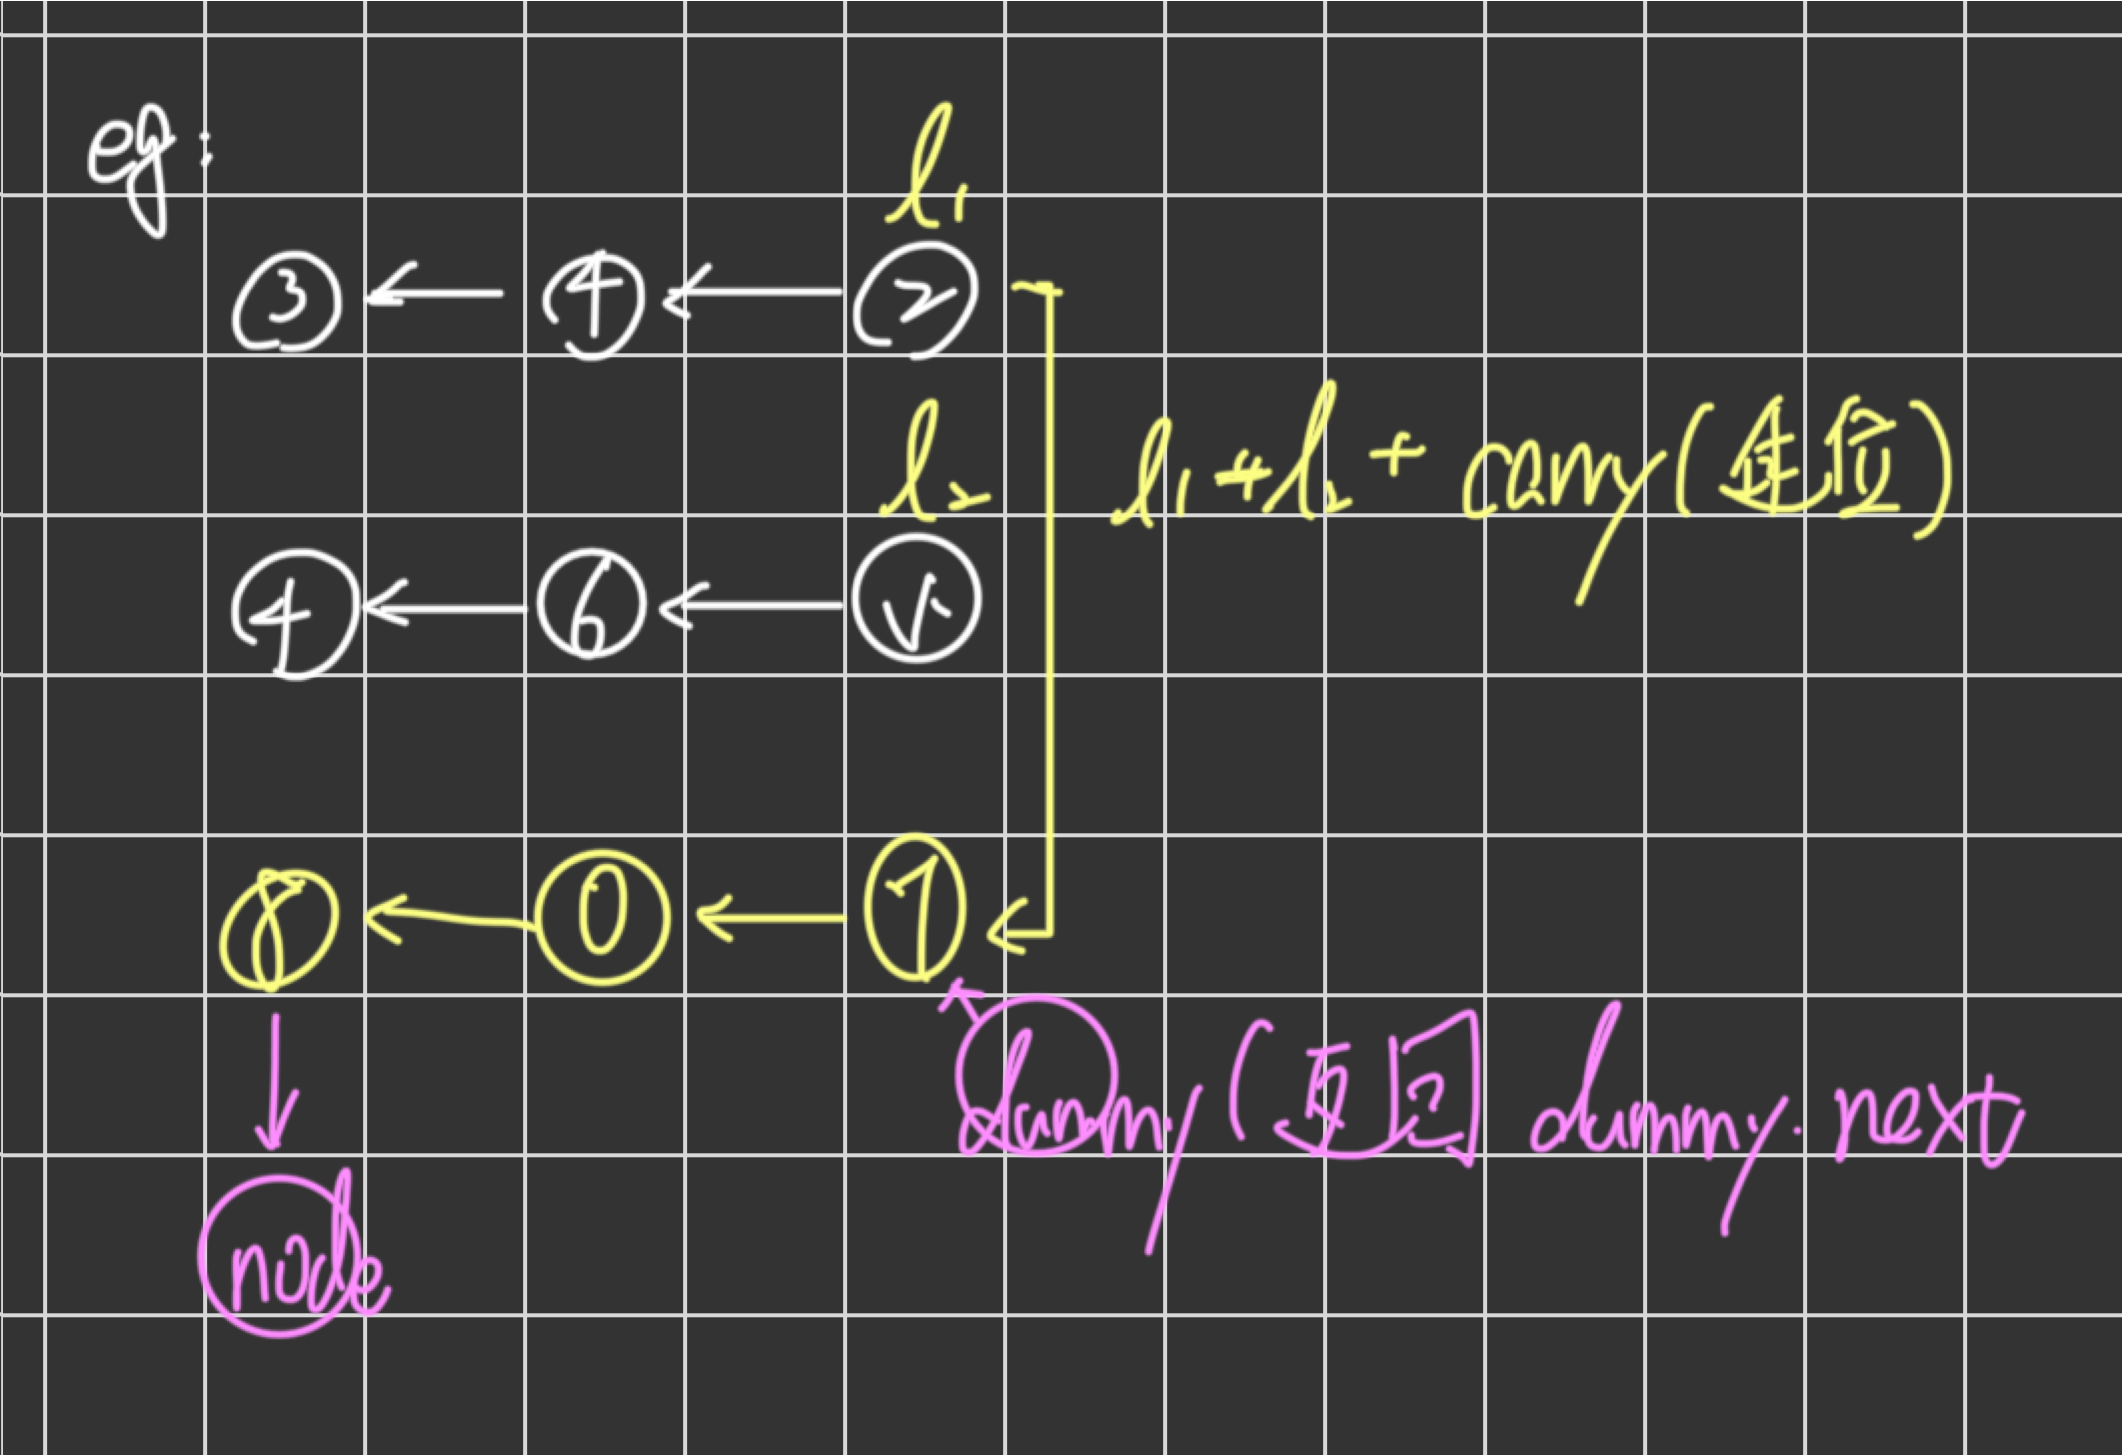 eg:
l₁
3 ← 4 ← 2
l₂
l₁ + l₂ + carry(進位)
4 ← 6 ← 5
8 ← 0 ← 7
dummy (返回 dummy.next
node